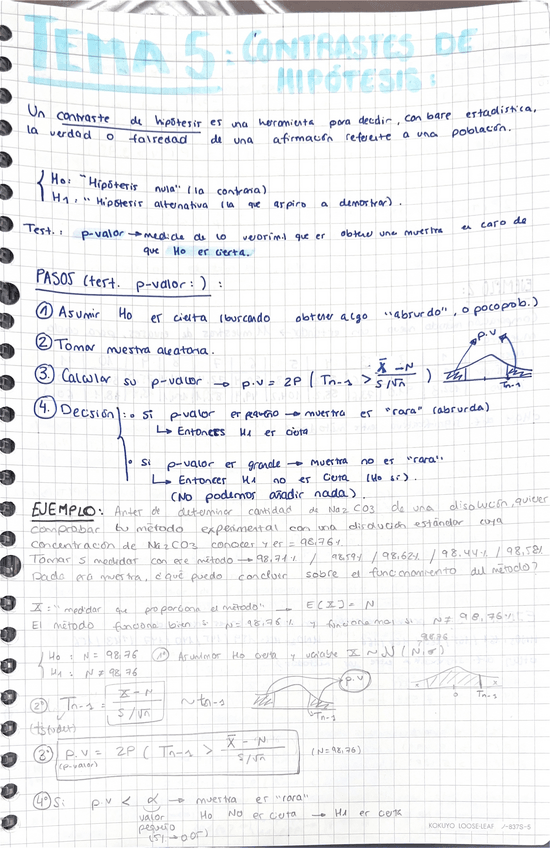 TEMA 5: CONTRASTES DE
HIPÓTESIS:
Un contraste de hipótesis es una herramienta para decidir, con base estadística,
la verdad o falsedad de una afirmación referente a una población.
H0: "Hipótesis nula" (la contraria)
H1: "Hipótesis alternativa (la que aspiro a demostrar).
Test.: p-valor → medida de lo verosímil que es obtener una muestra en caso de
que H0 es cierta.
PASOS (test. p-valor:):
① Asumir H0 es cierta (buscando obtener algo "absurdo", o poco prob.)
② Tomar muestra aleatoria.
③ Calcular su p-valor → p.v = 2P ( Tn-1 > X̄ - N / S/√n )
p.v
Tn-1
④ Decisión: • Si p-valor es pequeño → muestra es "rara" (absurda)
↳ Entonces H1 es cierta
• Si p-valor es grande → muestra no es "rara".
↳ Entonces H1 no es cierta (H0 sí).
(No podemos añadir nada).
EJEMPLO: Antes de determinar cantidad de Na2CO3 de una disolución, quieres
comprobar tu método experimental con una disolución estándar cuya
concentración de Na2CO3 conoces y es = 98,76%
Tomas 5 medidas con ese método → 98,71% / 98,59% / 98,62% / 98,44% / 98,58%
Dada esa muestra, ¿qué puedo concluir sobre el funcionamiento del método?
X: "medidas que proporciona el método" → E(X) = N
El método funciona bien si N = 98,76% y funciona mal si N ≠ 98,76%
H0: N = 98,76 1º Asumimos H0 cierta y variable X ~ N (N, σ)
98,76
H1: N ≠ 98,76
2º Tn-1 = X̄ - N / S/√n ~ tn-1
(t student)
p.v
Tn-1
0 Tn-1
3º p.v = 2P ( Tn-1 > X̄ - N / S/√n ) (N=98,76)
(p-valor)
4º Si p.v < α → muestra es "rara"
valor H0 NO es cierta → H1 es cierta
pequeño
(5% → 0'05)
KOKUYO LOOSE-LEAF